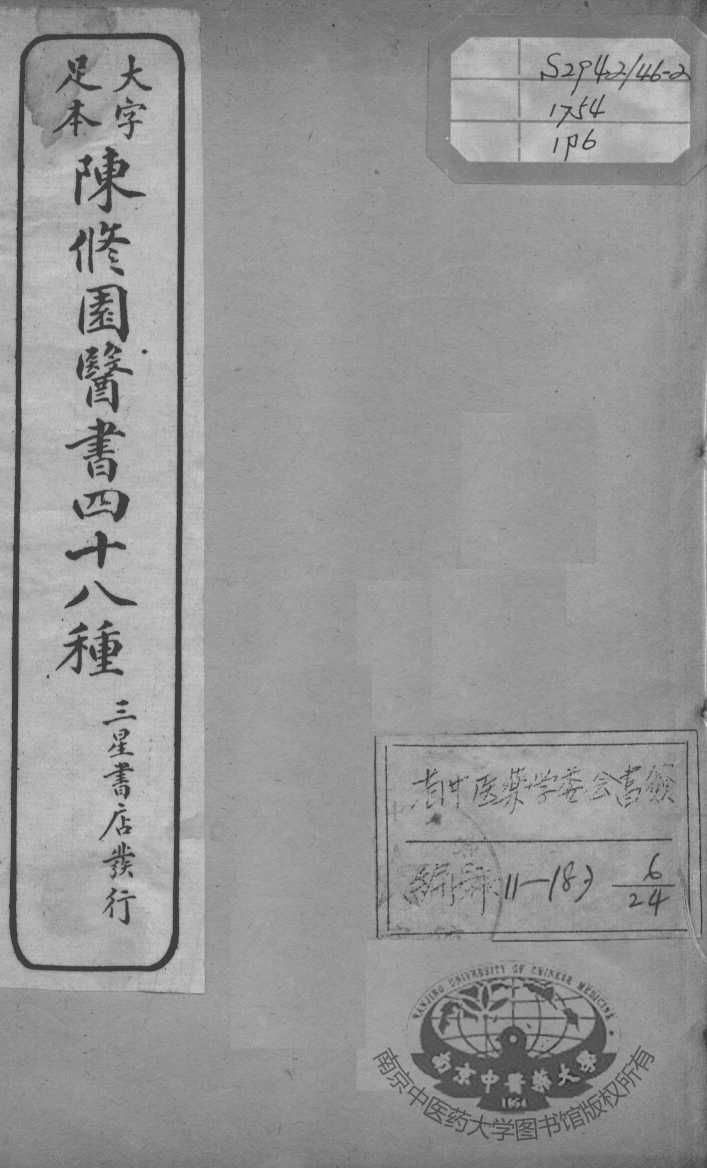 大字
足本
陳修園醫書四十八種
三星書店發行
S294.2/46-2
1754
1P6
省中医藥学委会書籤
編號 11—183 6/24
NANJING UNIVERSITY OF CHINESE MEDICINE
南京中醫藥大學
1954
南京中医药大学图书馆版权所有